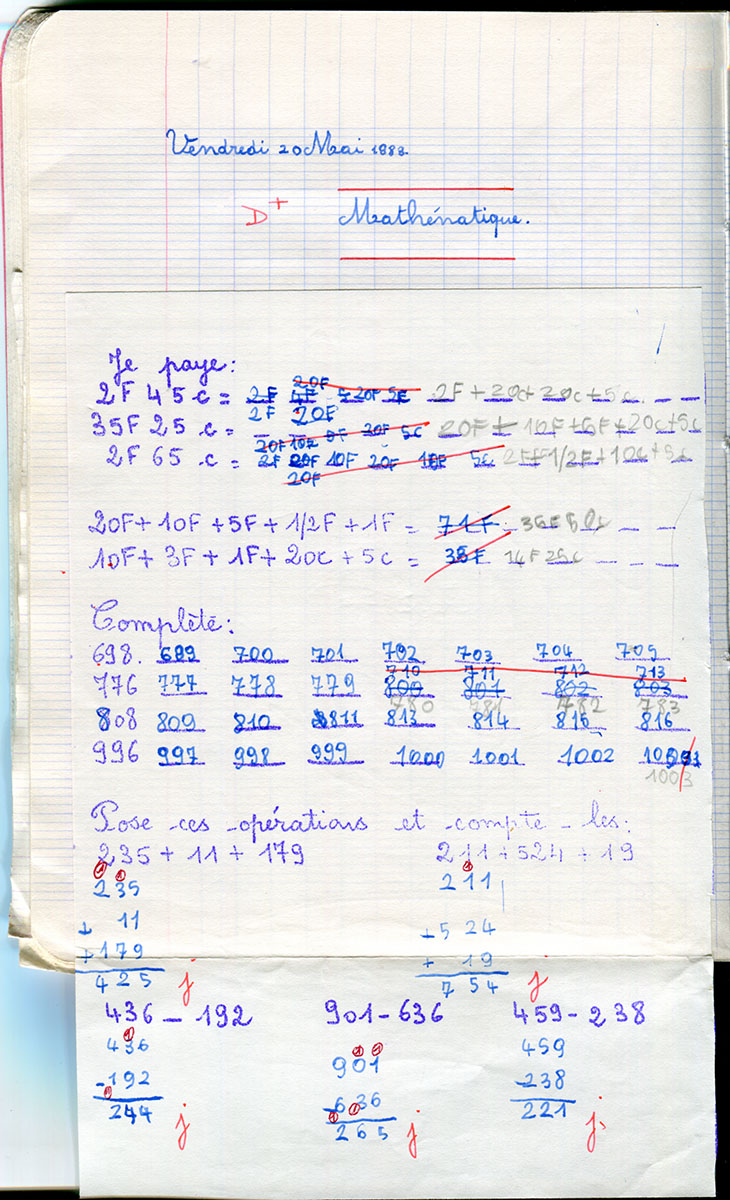 Vendredi 20 Mai 1983.
D+ Mathénatique.
Je paye:
20F
2F 45c = 2F 4F 20F 5F 2F + 20c + 20c + 5c
2F 20F
35F 25 c = 20F 5c 20F + 10F + 5F + 20c + 5c
2F 65 c = 2F 20F 10F 20F 10F 5c 2F + 1/2F + 10c + 5c
20F
20F + 10F + 5F + 1/2F + 1F = 71F
10F + 3F + 1F + 20c + 5c = 38F 14F 25c
Complète:
698. 699 700 701 702 703 704 705
710 711 712 713
776 777 778 779 800 801 802 803
780 781 782 783
808 809 810 811 813 814 815 816
996 997 998 999 1000 1001 1002
1003
Pose ces opérations et compte-les:
235 + 11 + 179 211 + 524 + 19
1 1 1
235 211
11 + 524
+ 179 + 19
425 j 754 j
436 - 192 901 - 636 459 - 238
436 901 459
- 192 - 636 - 238
244 j 265 j 221 j